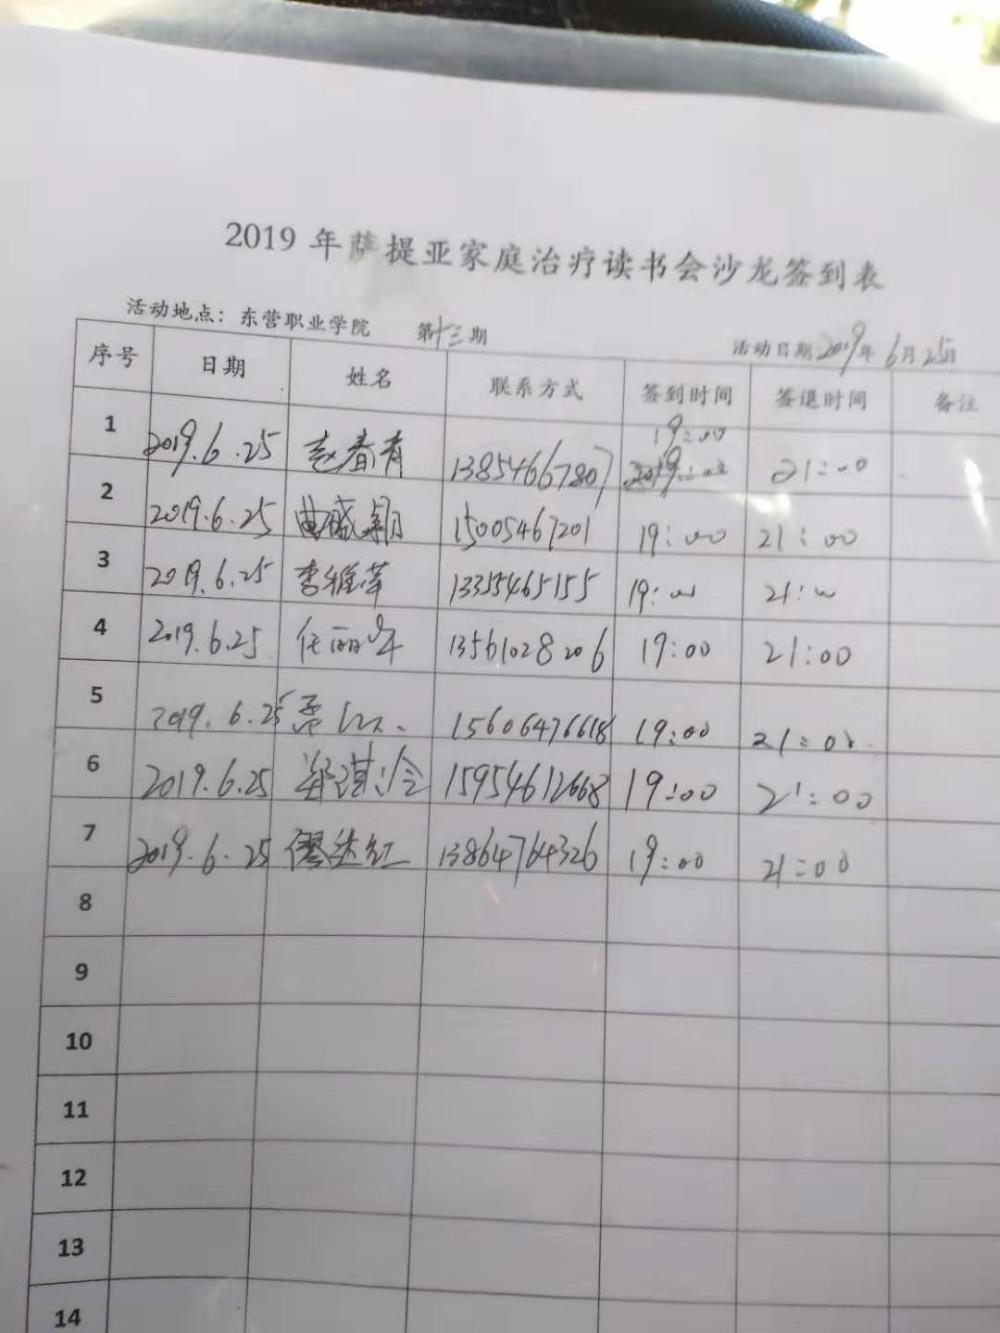 2019 年萨提亚家庭治疗读书会沙龙签到表
活动地点：东营职业学院 第十三期 活动日期2019年6月25日
序号 日期 姓名 联系方式 签到时间 签退时间 备注
1 2019.6.25 赵春青 13854667807 19:00 21:00
2 2019.6.25 曲 颖 15005467201 19:00 21:00
3 2019.6.25 李雅萍 13355465155 19:00 21:00
4 2019.6.25 任丽华 13561028206 19:00 21:00
5 2019.6.25 15606476618 19:00 21:00
6 2019.6.25 15954612668 19:00 21:00
7 2019.6.25 红 13864764326 19:00 21:00
8
9
10
11
12
13
14